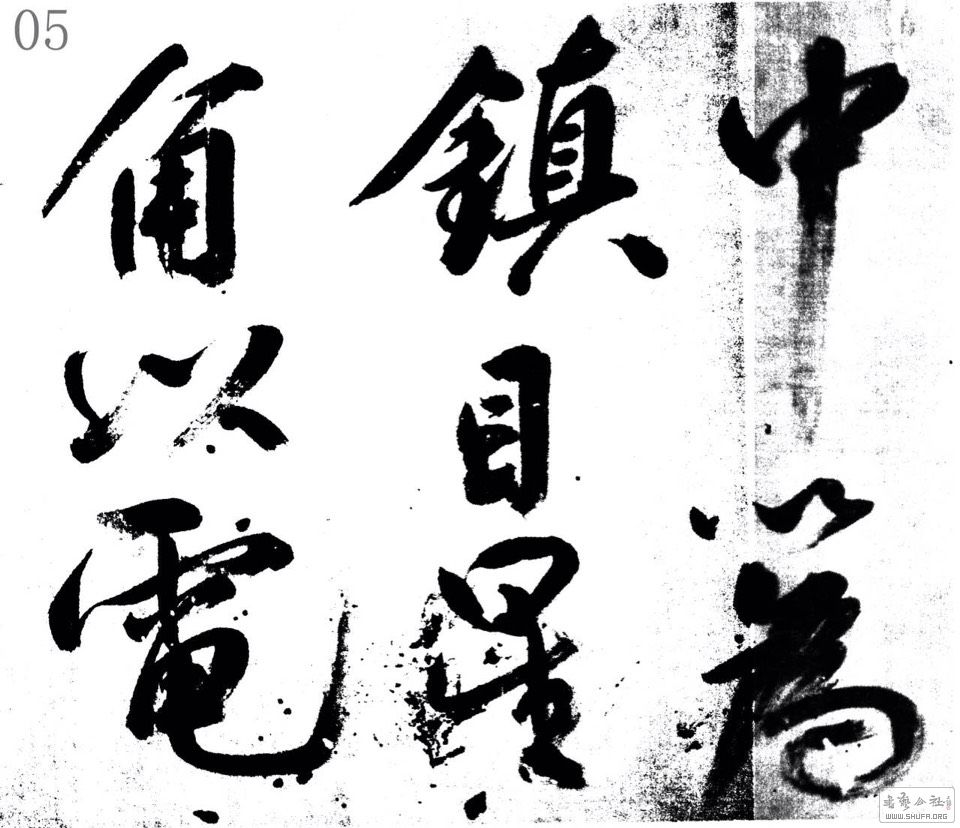 05
中以為
鎮目星
角以電
书艺公社
WWW.SHUFA.ORG